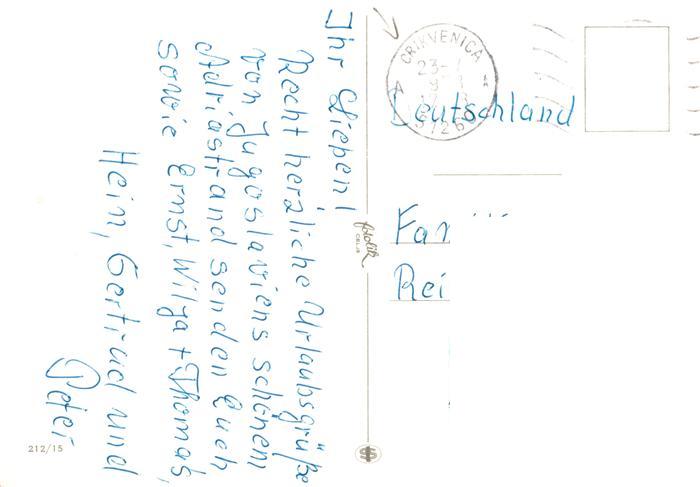 Ihr Lieben!
Recht herzliche Urlaubsgrüße
von Jugoslaviens schönem
Adriastrand senden Euch
sowie Ernst, Wilga + Thomas,
Hein, Gertrud und
Peter
CRIKVENICA
23
51260
Deutschland
Far ...
Rei
fotolik
CELJE
212/15